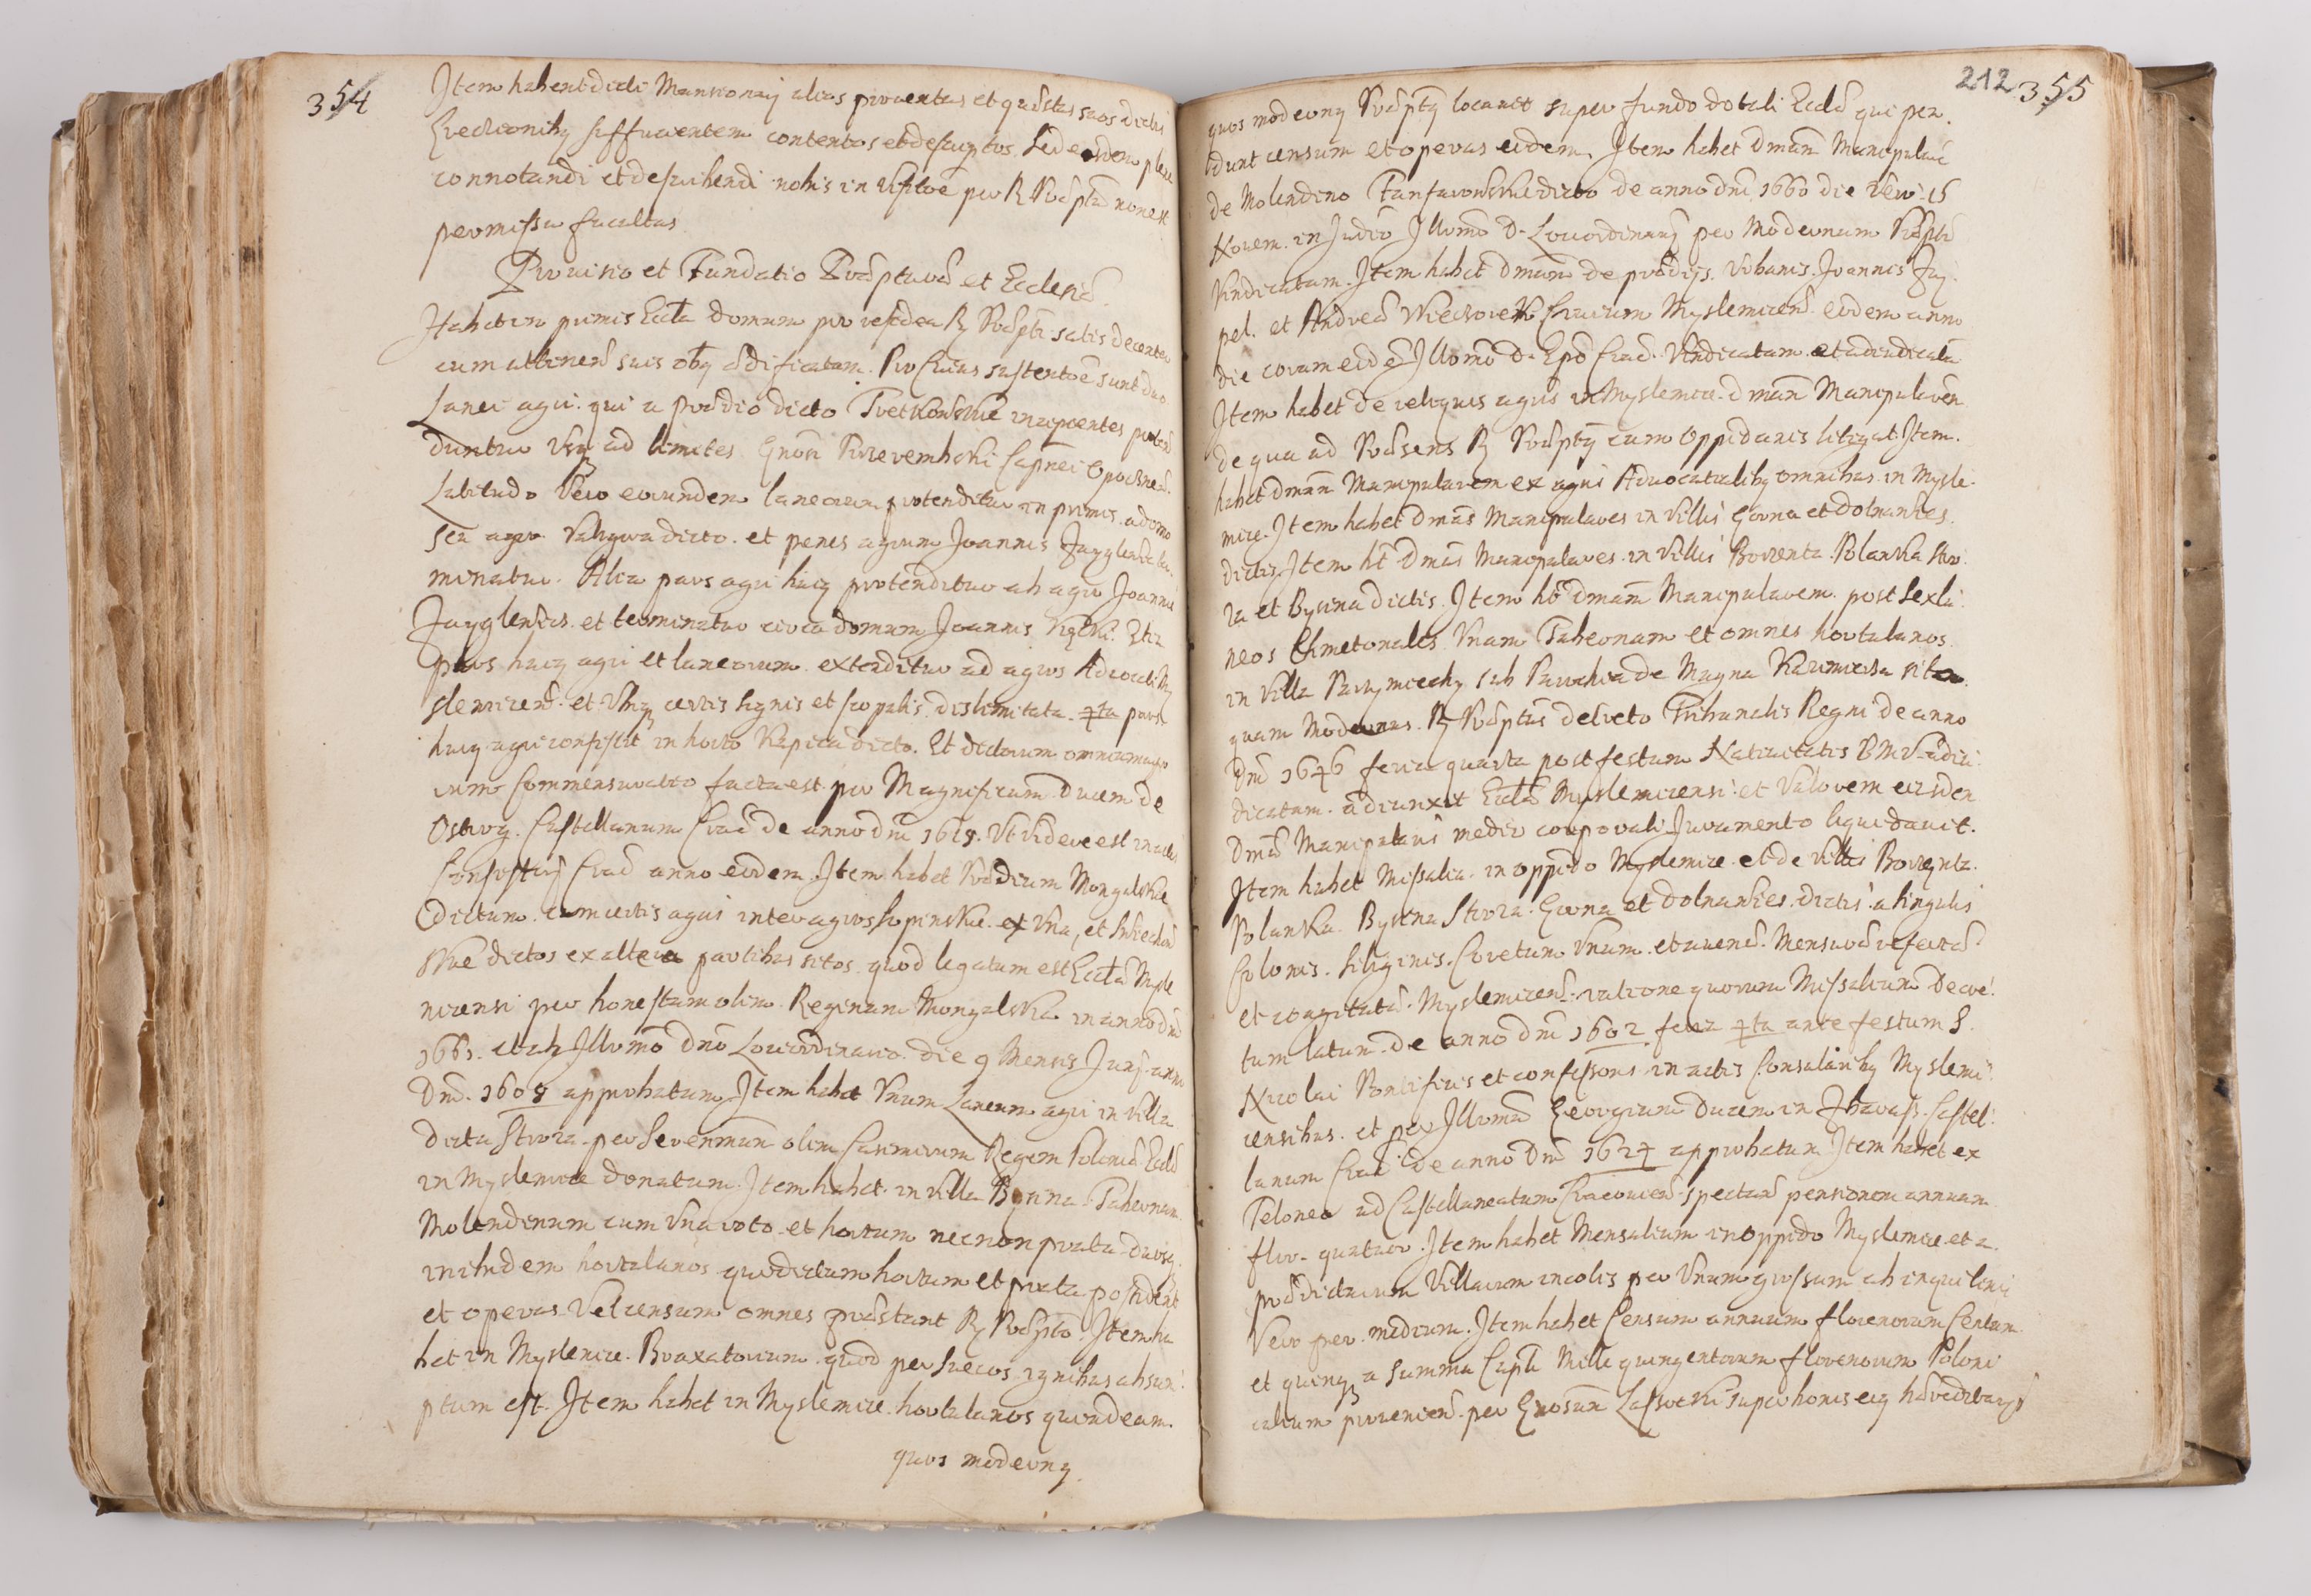 354
Item habent dicti Mansionarij alios prouentus et quæstus suos dictis
Erectionibq sufficientem contentos et descriptos. Sed eosdem plene
connotandi et describendi nobis in Visitoē per R Præptū non est
permissa facultas.
Prouisio et Fundatio Præpturæ et Ecclesiæ.
Habet in primis Eccla domum pro residen R Præpti satis decenter
cum attinen suis obq ædificatam. Pro Cuius sustentoē sunt duo
Lanei agri qui a prædio dicto incipientes proten
duntur Vsq ad limites Gnosi Capnei
Latitudo Vero eorundem laneorum protenditur in primis a domo
seu agro dicto. et penes agrum Joannis
minatur. Alia pars agri huiq protenditur ab agro Joannis
et terminatur circa domum Joannis
pars huiq agri et laneorum extenditur ad agros Aduocati My
slemicen. et Vbiq certis signis et scopulis dislimitata. 4ta pars
huiq agri consistit in horto Kapica dicto. Et dictorum omnium agro
rum Commensuratio facta est per Magnificum Ducem de
Ostrog. Castellanum Crac de anno dni 1618. Vt Videre est in actis
Consistorij Crac anno eodem. Item habet Prædium Mongalskie
dictum. cum certis agris inter agros ex Vna, et
skie dictos ex altera partibus sitos. quod legatum est Eccliæ Mysle
nicensi per honestam olim Reginam Mongalska in anno dni
1661. et ab Illvmo Dno Lociordinario die 9 Mensis Junij anno
Dni. 1608 approbatum. Item habet Vnum Laneum agri in Villa
dicta Stroza per Serenmum olim Casimirum Regem Poloniæ Eccliæ
in Myslemice donatum. Item habet in Villa Bysina Tabernam
Molendinum cum Vna roto et hortum necnon prata duosq
inibidem hortulanos qui dictum hortum et prata possident
et operas Vel censum omnes præstant R Præpto. Item ha
bet in Myslemice Braxatorium quod per Suecos ignibus absum
ptum est. Item habet in Myslemice hortulanos quosdam.
quos modernq
212 355
quos modernq Præptq locauit super fundo dotali Eccliæ qui pen
dunt censum et operas eidem. Item habet Dmam Manipularē
de Molendino dicto de anno dni 1660 die Vero 15
Nouem. in Judio Illvmo D. Lociordinarij per Modernum Præptū
Vindicatam. Item habet Dmam de prædijs Vrbanis Joannis
pel. et Andreæ Wieczorek Ciuium Myslemicen eodem anno
die coram eodē Illvmo D. Epō Crac. Vindicatam et adiudicatā
Item habet de reliquis agris in Myslemice Dmam Manipularem
de qua ad Præsens R Præptq cum Oppidanis litigat. Item.
habet Dmam Manipularem ex agris Aduocatialibq omnibus in Mysle
mice. Item habet Dmas Manipulares in Villis Gorna et Dolnawies
dictis. Item ht Dmas Manipulares in Villis Borzenta Polanka Stro
za et Bysina dictis. Item ht Dmam Manipularem post Sex la
neos Cmetonales Vnam Tabernam et omnes hortulanos
in Villa sub Parochia de Magna sita
quam Modernus R Præptus decreto Tribunalis Regni de anno
Dni 1646 feria quarta post festum Natiuitatis BMV adiu
dicatam. adiunxit Eccliæ Myslemicensi et Valorem eiusdem
Dmæ Manipularis medio corporali Juramento liquidauit.
Item habet Missalia in oppido Myslemice et de Villis Borzenta
Polanka Bysina Stroza Gorna et Dolnawies dictis a singulis
Colonis. Siliginis. Coretum Vnum. et auenæ. Mensuræ refertæ
et coagitatæ Myslemicen ratione quorum Missalium Decre
tum latum de anno Dni 1602 feria 4ta ante festum S.
Nicolai Pontificis et confessoris in actis Consularibq Myslemi
censibus. et per Illvmum Georgium Ducem in Zbarass Castel
lanum Crac de anno Dni 1624 approbatum Item habet ex
Teloneo ad Castellaneatum Cracouien spectan pensionem annuam
flor. quatuor. Item habet Mensalium in oppido Myslemice et a
prædictarum Villarum incolis per Vnum grossum ab inquilinis
Vero per medium. Item habet Censum annuum florenorum Centum
et quinq a summa Capli Mille quingentorum florenorum Poloni
calium prouenien. per Gnosum super bonis eiq hæreditarijs